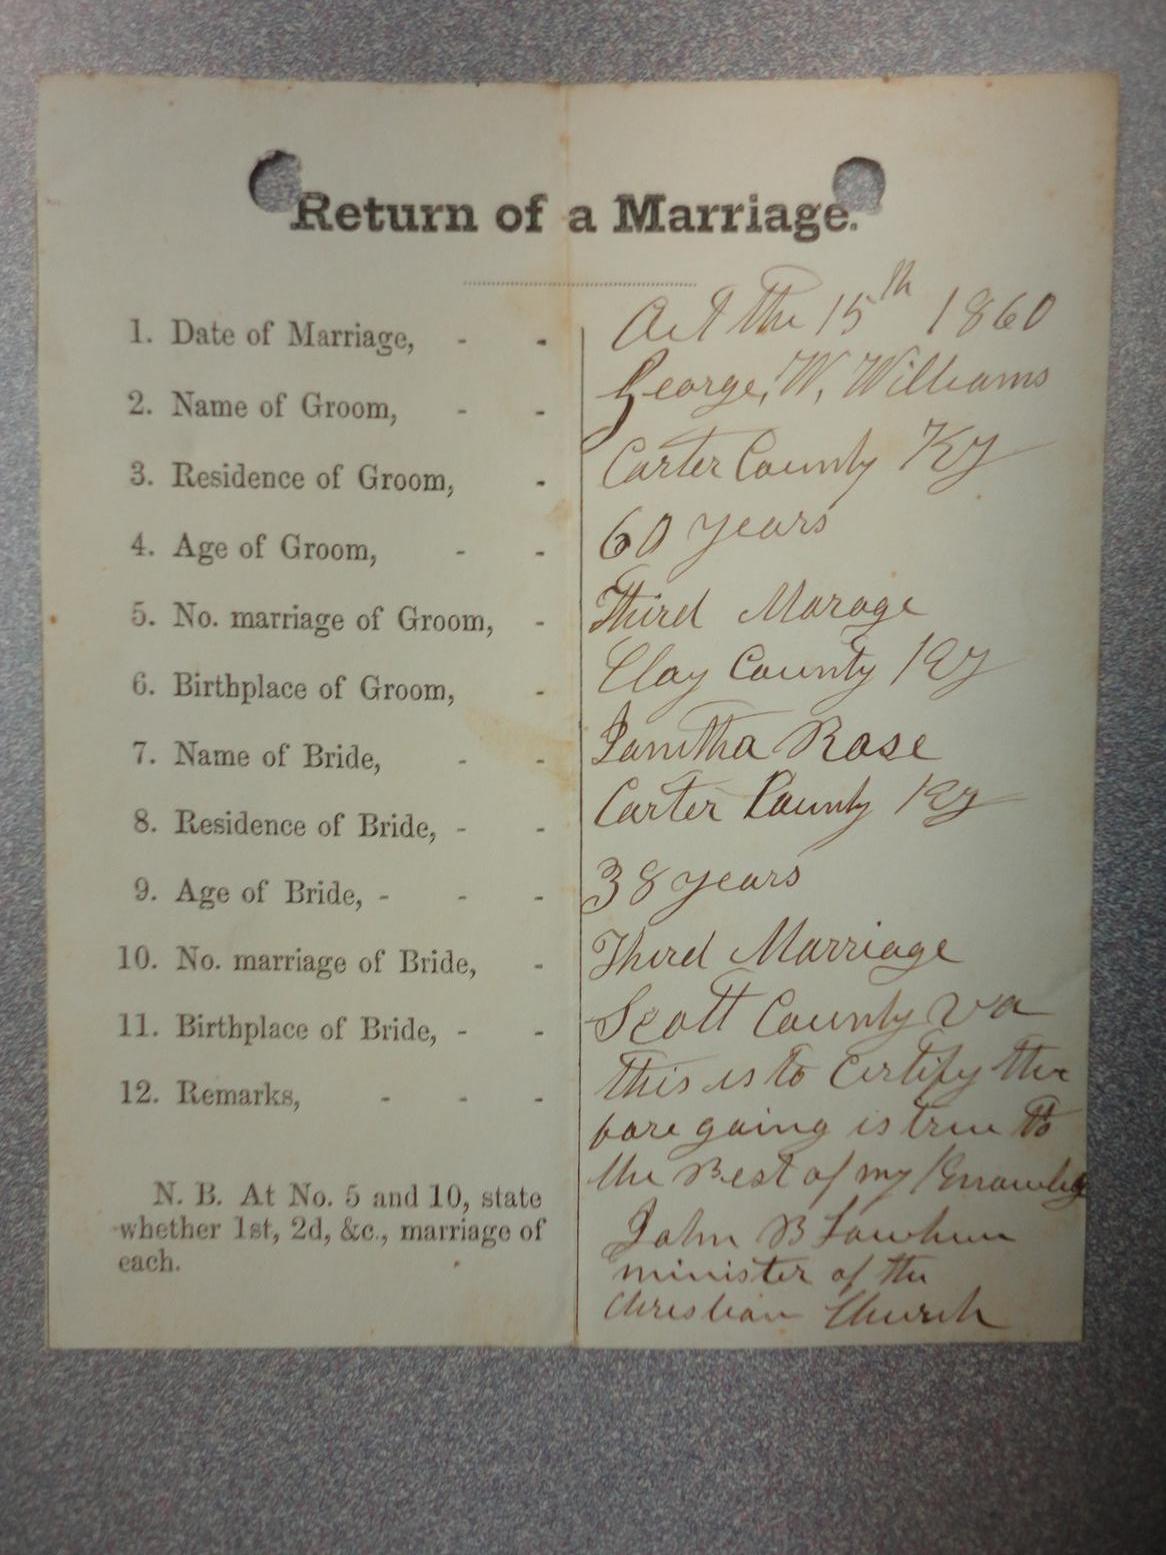 Return of a Marriage.
1. Date of Marriage, - - Oct the 15th 1860
2. Name of Groom, - - George, W, Williams
3. Residence of Groom, - Carter County Ky
4. Age of Groom, - - 60 years
5. No. marriage of Groom, - Third Marage
6. Birthplace of Groom, - Clay County Ky
7. Name of Bride, - - Janitha Rose
8. Residence of Bride, - - Carter County Ky
9. Age of Bride, - - - 38 years
10. No. marriage of Bride, - Third Marriage
11. Birthplace of Bride, - - Scott County Va
12. Remarks, - - - This is to Certify the
fore going is true to
the Best of my
N. B. At No. 5 and 10, state
whether 1st, 2d, &c., marriage of
each.
John B
minister of the
Christian Church